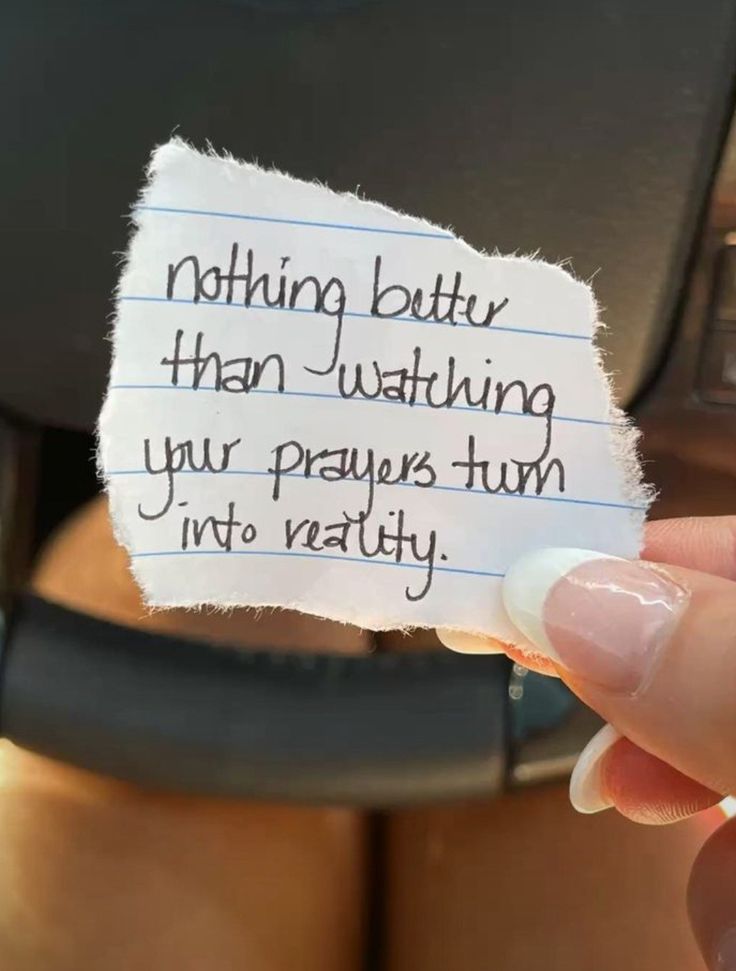 nothing better
than watching
your prayers turn
into reality.